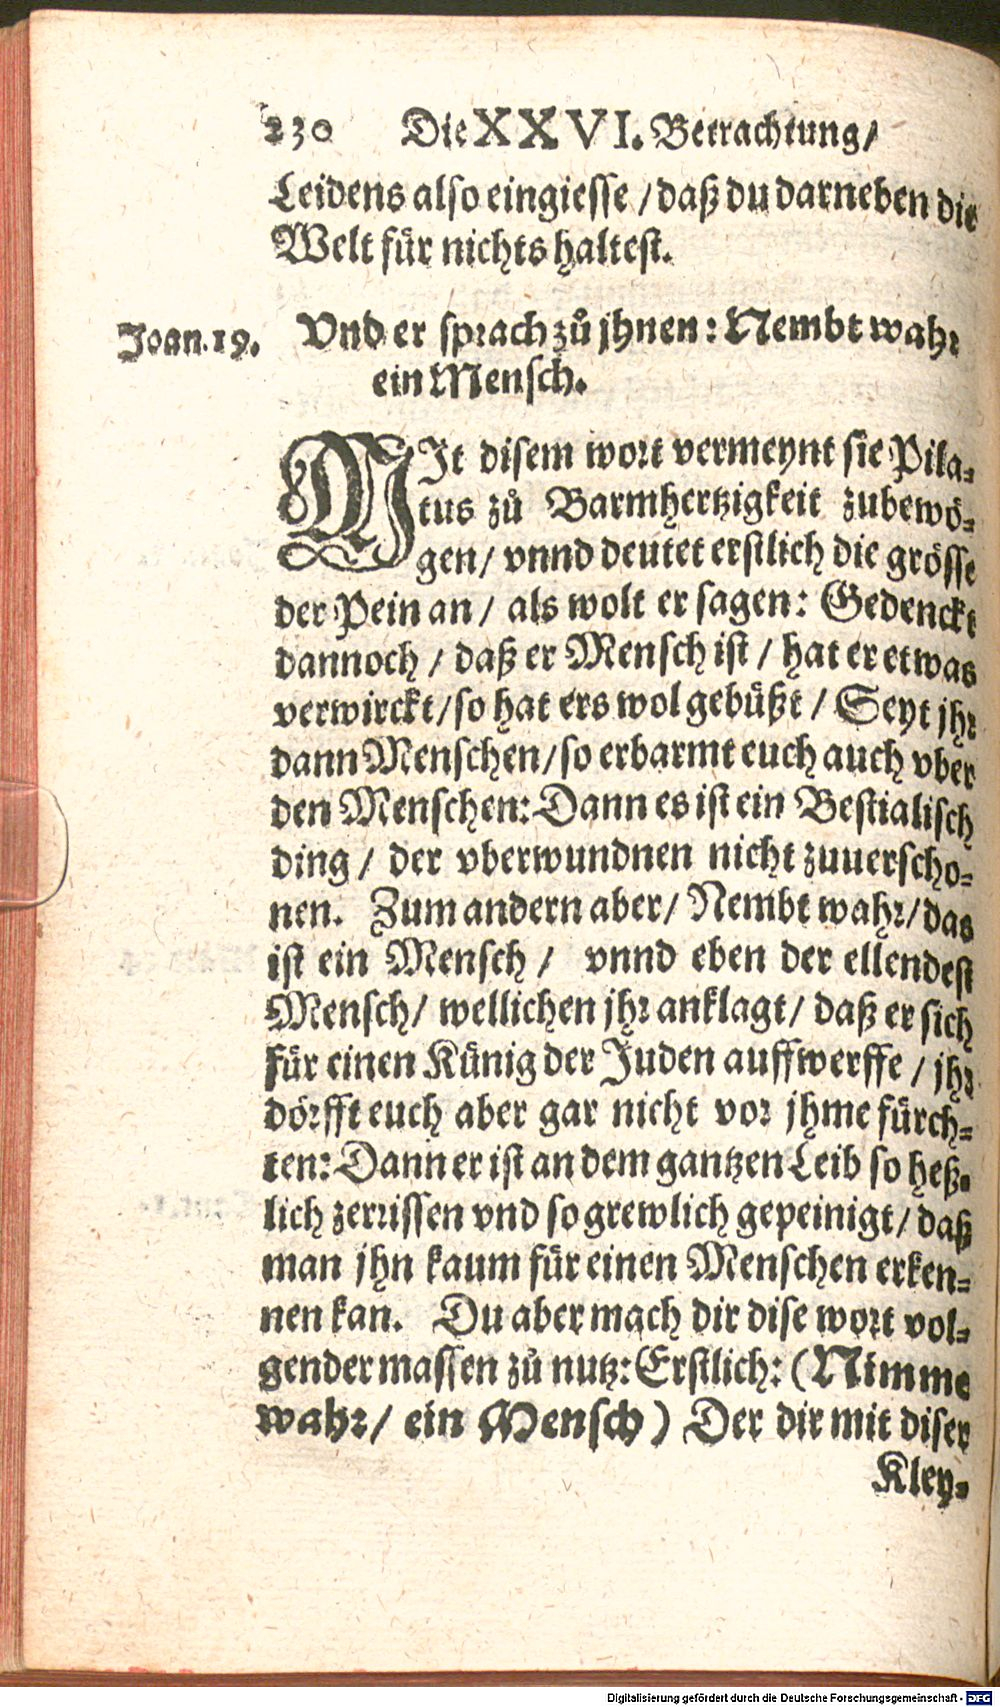 230 Die XXVI. Betrachtung/
Leidens also eingiesse / daß du darneben die
Welt für nichts haltest.
Joan. 19. Vnd er sprach zů jhnen: Nembt wahr
ein Mensch.
MIt disem wort vermeynt sie Pila-
tus zů Barmhertzigkeit zubewö-
gen/ vnnd deutet erstlich die grösse
der Pein an / als wolt er sagen: Gedenckt
dannoch / daß er Mensch ist / hat er etwas
verwirckt/ so hat ers wol gebüßt / Seyt jhr
dann Menschen/ so erbarmt euch auch vber
den Menschen: Dann es ist ein Bestialisch
ding / der vberwundnen nicht zuuerscho-
nen. Zum andern aber/ Nembt wahr/ das
ist ein Mensch / vnnd eben der ellendest
Mensch/ wellichen jhr anklagt/ daß er sich
für einen Künig der Juden auffwerffe / jhr
dörfft euch aber gar nicht vor jhme fürch-
ten: Dann er ist an dem gantzen Leib so heß-
lich zerrissen vnd so grewlich gepeinigt/ daß
man jhn kaum für einen Menschen erken-
nen kan. Du aber mach dir dise wort vol-
gender massen zů nutz: Erstlich: (Nimme
wahr/ ein Mensch) Der dir mit diser
Kley-
Digitalisierung gefördert durch die Deutsche Forschungsgemeinschaft - DFG